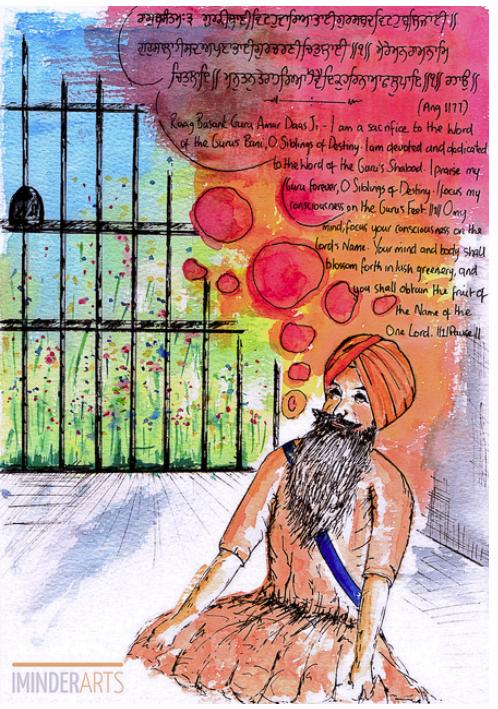 ਗੁਰਕੀਬਾਣੀਵਿਟਹੁਵਾਰਿਆਭਾਈਗੁਰਸਬਦਵਿਟਹੁਬਲਿਜਾਈ॥
ਗੁਰੁਸਾਲਾਹੀਸਦਅਪਣਾਭਾਈਗੁਰਚਰਣੀਚਿਤੁਲਾਈ॥੧॥ ਮੇਰੇਮਨਰਾਮਨਾਮਿ
ਚਿਤੁਲਾਇ॥ ਮਨੁਤਨੁਤੇਰਾਹਰਿਆਹੋਵੈਇਕੁਹਰਿਨਾਮਾਫਲੁਪਾਇ॥੧॥ ਰਹਾਉ॥
(Ang 1177)
Raag Basant Guru Amar Daas Ji - I am a sacrifice to the Word
of the Guru's Bani, O Siblings of Destiny. I am devoted and dedicated
to the Word of the Guru's Shabad. I praise my
Guru forever, O Siblings of Destiny. I focus my
consciousness on the Guru's Feet. ||1|| O my
mind, focus your consciousness on the
Lord's Name. Your mind and body shall
blossom forth in lush greenery, and
you shall obtain the fruit of
the Name of the
One Lord. ||1||Pause||
IMINDERARTS